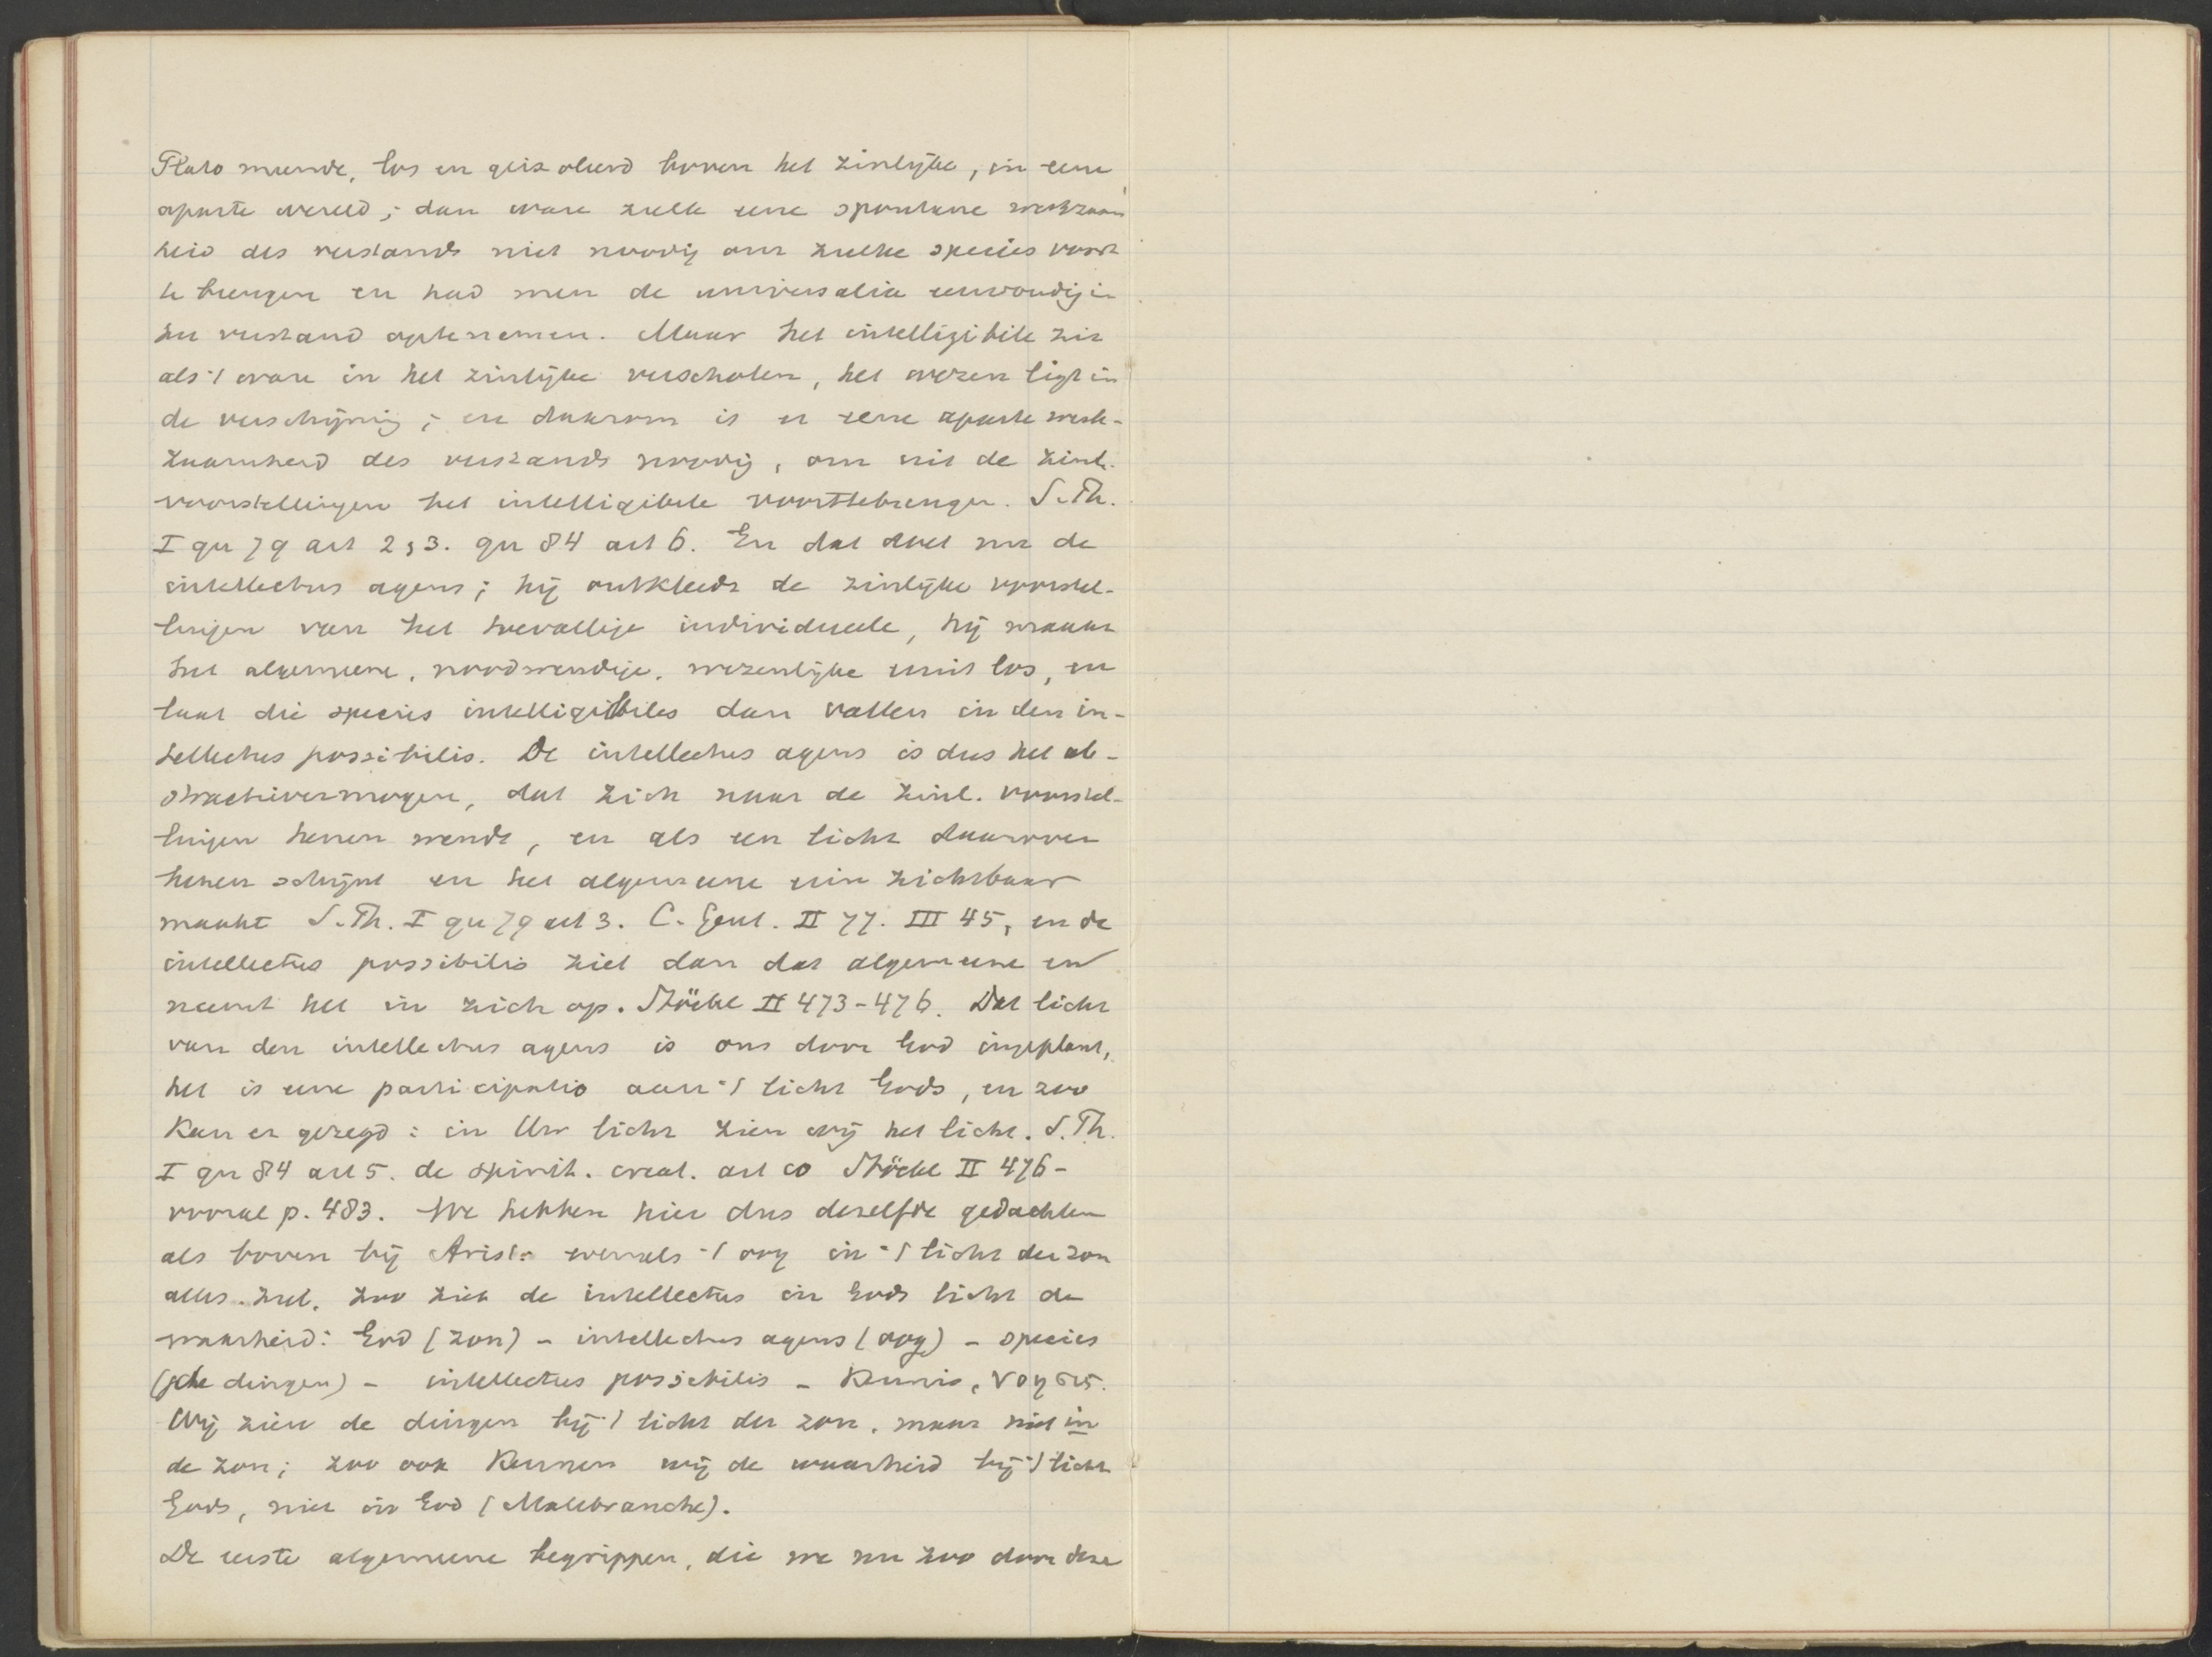 Plato meende, los en geisoleerd boven het zinlijke, in eene
aparte wereld; dan ware zulk eene spontane werkzaam
heid des verstands niet noodig om zulke species voort
te brengen en had men de universalia eenvoudig in
het verstand optenemen. Maar het intelligibile zit
als 't ware in het zinlijke verscholen, het wezen ligt in
de verschijning; en daarom is er eene aparte werk-
zaamheid des verstands noodig, om uit de zinl.
voorstellingen het intelligibele voorttebrengen. S. Th.
I qu 79 art 2, 3. qu 84 art 6. En dat doet nu de
intellectus agens; hij ontkleedt de zinlijke voorstel-
lingen van het toevallige individueele, hij maakt
het algemeene, noodwendige, wezenlijke eruit los, en
laat die species intelligibiles dan vallen in den in-
tellectus possibilis. De intellectus agens is dus het ab-
stractievermogen, dat zich naar de zinl. voorstel-
lingen henen wendt, en als een licht daarover
henen schijnt en het algemeene erin zichtbaar
maakt S. Th. I qu 79 art 3. C. Gent. II 77. III 45, en de
intellectus possibilis ziet dan dat algemeene en
neemt het in zich op. Stöckl II 473-476. Dat licht
van den intellectus agens is ons door God ingeplant,
het is eene participatio aan 't licht Gods, en zoo
kan er gezegd: in Uw licht zien wij het licht. S. Th.
I qu 84 art 5. de spirit. creat. art 10 Stöckl II 476-
vooral p. 483. We hebben hier dus dezelfde gedachten
als boven bij Arist: evenals 't oog in 't licht der zon
alles ziet, zoo ziet de intellectus in Gods licht de
waarheid: God (zon) - intellectus agens (oog) - species
(de dingen) - intellectus possibilis - kennis, νοησις.
Wij zien de dingen bij 't licht der zon, maar niet in
de zon; zoo ook kennen wij de waarheid bij 't licht
Gods, niet in God (Malebranche).
De eerste algemeene begrippen, die we nu zoo door deze